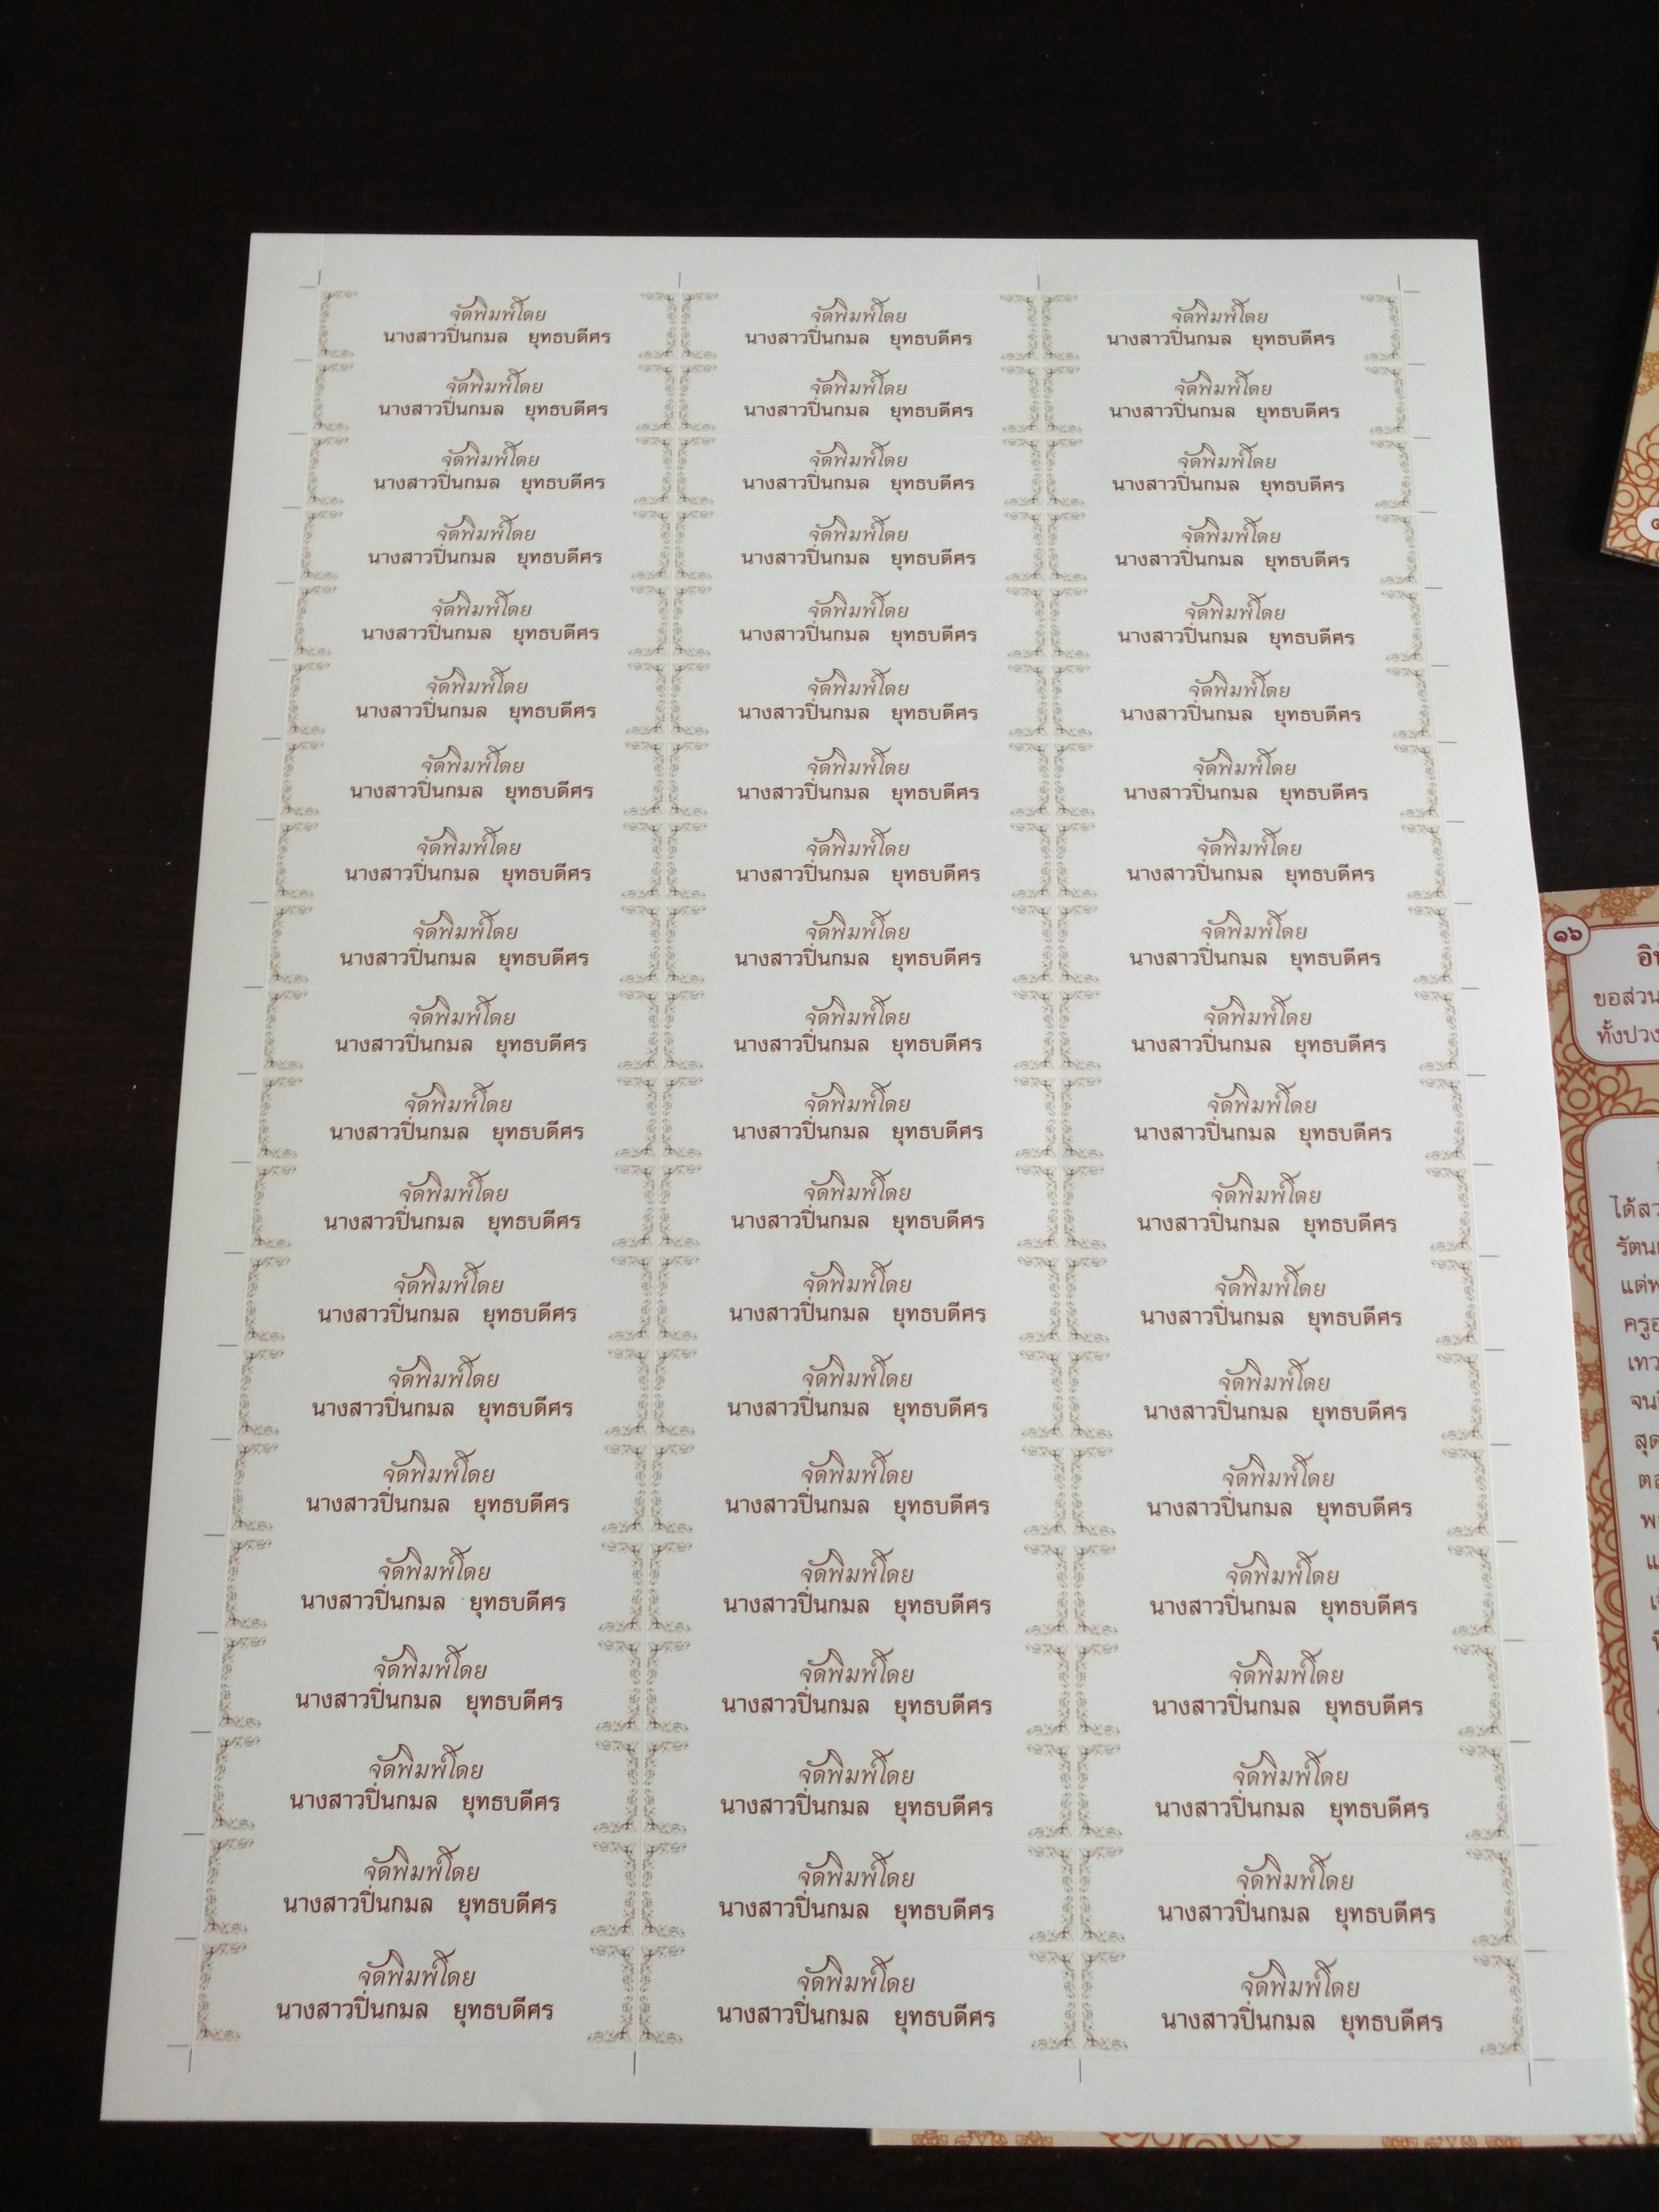 จัดพิมพ์โดย จัดพิมพ์โดย จัดพิมพ์โดย
นางสาวปิ่นกมล ยุทธบดีศร นางสาวปิ่นกมล ยุทธบดีศร นางสาวปิ่นกมล ยุทธบดีศร
จัดพิมพ์โดย จัดพิมพ์โดย จัดพิมพ์โดย
นางสาวปิ่นกมล ยุทธบดีศร นางสาวปิ่นกมล ยุทธบดีศร นางสาวปิ่นกมล ยุทธบดีศร
จัดพิมพ์โดย จัดพิมพ์โดย จัดพิมพ์โดย
นางสาวปิ่นกมล ยุทธบดีศร นางสาวปิ่นกมล ยุทธบดีศร นางสาวปิ่นกมล ยุทธบดีศร
จัดพิมพ์โดย จัดพิมพ์โดย จัดพิมพ์โดย
นางสาวปิ่นกมล ยุทธบดีศร นางสาวปิ่นกมล ยุทธบดีศร นางสาวปิ่นกมล ยุทธบดีศร
จัดพิมพ์โดย จัดพิมพ์โดย จัดพิมพ์โดย
นางสาวปิ่นกมล ยุทธบดีศร นางสาวปิ่นกมล ยุทธบดีศร นางสาวปิ่นกมล ยุทธบดีศร
จัดพิมพ์โดย จัดพิมพ์โดย จัดพิมพ์โดย
นางสาวปิ่นกมล ยุทธบดีศร นางสาวปิ่นกมล ยุทธบดีศร นางสาวปิ่นกมล ยุทธบดีศร
จัดพิมพ์โดย จัดพิมพ์โดย จัดพิมพ์โดย
นางสาวปิ่นกมล ยุทธบดีศร นางสาวปิ่นกมล ยุทธบดีศร นางสาวปิ่นกมล ยุทธบดีศร
จัดพิมพ์โดย จัดพิมพ์โดย จัดพิมพ์โดย
นางสาวปิ่นกมล ยุทธบดีศร นางสาวปิ่นกมล ยุทธบดีศร นางสาวปิ่นกมล ยุทธบดีศร
จัดพิมพ์โดย จัดพิมพ์โดย จัดพิมพ์โดย
นางสาวปิ่นกมล ยุทธบดีศร นางสาวปิ่นกมล ยุทธบดีศร นางสาวปิ่นกมล ยุทธบดีศร
จัดพิมพ์โดย จัดพิมพ์โดย จัดพิมพ์โดย
นางสาวปิ่นกมล ยุทธบดีศร นางสาวปิ่นกมล ยุทธบดีศร นางสาวปิ่นกมล ยุทธบดีศร
จัดพิมพ์โดย จัดพิมพ์โดย จัดพิมพ์โดย
นางสาวปิ่นกมล ยุทธบดีศร นางสาวปิ่นกมล ยุทธบดีศร นางสาวปิ่นกมล ยุทธบดีศร
จัดพิมพ์โดย จัดพิมพ์โดย จัดพิมพ์โดย
นางสาวปิ่นกมล ยุทธบดีศร นางสาวปิ่นกมล ยุทธบดีศร นางสาวปิ่นกมล ยุทธบดีศร
จัดพิมพ์โดย จัดพิมพ์โดย จัดพิมพ์โดย
นางสาวปิ่นกมล ยุทธบดีศร นางสาวปิ่นกมล ยุทธบดีศร นางสาวปิ่นกมล ยุทธบดีศร
จัดพิมพ์โดย จัดพิมพ์โดย จัดพิมพ์โดย
นางสาวปิ่นกมล ยุทธบดีศร นางสาวปิ่นกมล ยุทธบดีศร นางสาวปิ่นกมล ยุทธบดีศร
จัดพิมพ์โดย จัดพิมพ์โดย จัดพิมพ์โดย
นางสาวปิ่นกมล ยุทธบดีศร นางสาวปิ่นกมล ยุทธบดีศร นางสาวปิ่นกมล ยุทธบดีศร
จัดพิมพ์โดย จัดพิมพ์โดย จัดพิมพ์โดย
นางสาวปิ่นกมล ยุทธบดีศร นางสาวปิ่นกมล ยุทธบดีศร นางสาวปิ่นกมล ยุทธบดีศร
จัดพิมพ์โดย จัดพิมพ์โดย จัดพิมพ์โดย
นางสาวปิ่นกมล ยุทธบดีศร นางสาวปิ่นกมล ยุทธบดีศร นางสาวปิ่นกมล ยุทธบดีศร
จัดพิมพ์โดย จัดพิมพ์โดย จัดพิมพ์โดย
นางสาวปิ่นกมล ยุทธบดีศร นางสาวปิ่นกมล ยุทธบดีศร นางสาวปิ่นกมล ยุทธบดีศร
จัดพิมพ์โดย จัดพิมพ์โดย จัดพิมพ์โดย
นางสาวปิ่นกมล ยุทธบดีศร นางสาวปิ่นกมล ยุทธบดีศร นางสาวปิ่นกมล ยุทธบดีศร
จัดพิมพ์โดย จัดพิมพ์โดย จัดพิมพ์โดย
นางสาวปิ่นกมล ยุทธบดีศร นางสาวปิ่นกมล ยุทธบดีศร นางสาวปิ่นกมล ยุทธบดีศร
๑๖
ขอส่วน
ทั้งปวง